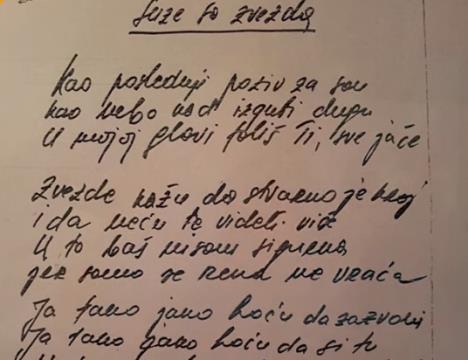 Suze sa zvezda
Kao poslednji poziv za son
kao nebo kad izgubi dugu
U mojoj glavi foliš Ti, sve jače
Zvezde kažu da stvarno je kraj
i da neću te videti više
U to baš nisam sigurna
jer samo se rena ne vraća
Ja tako jako hoću da zazvoni
Ja tako jako hoću da si tu